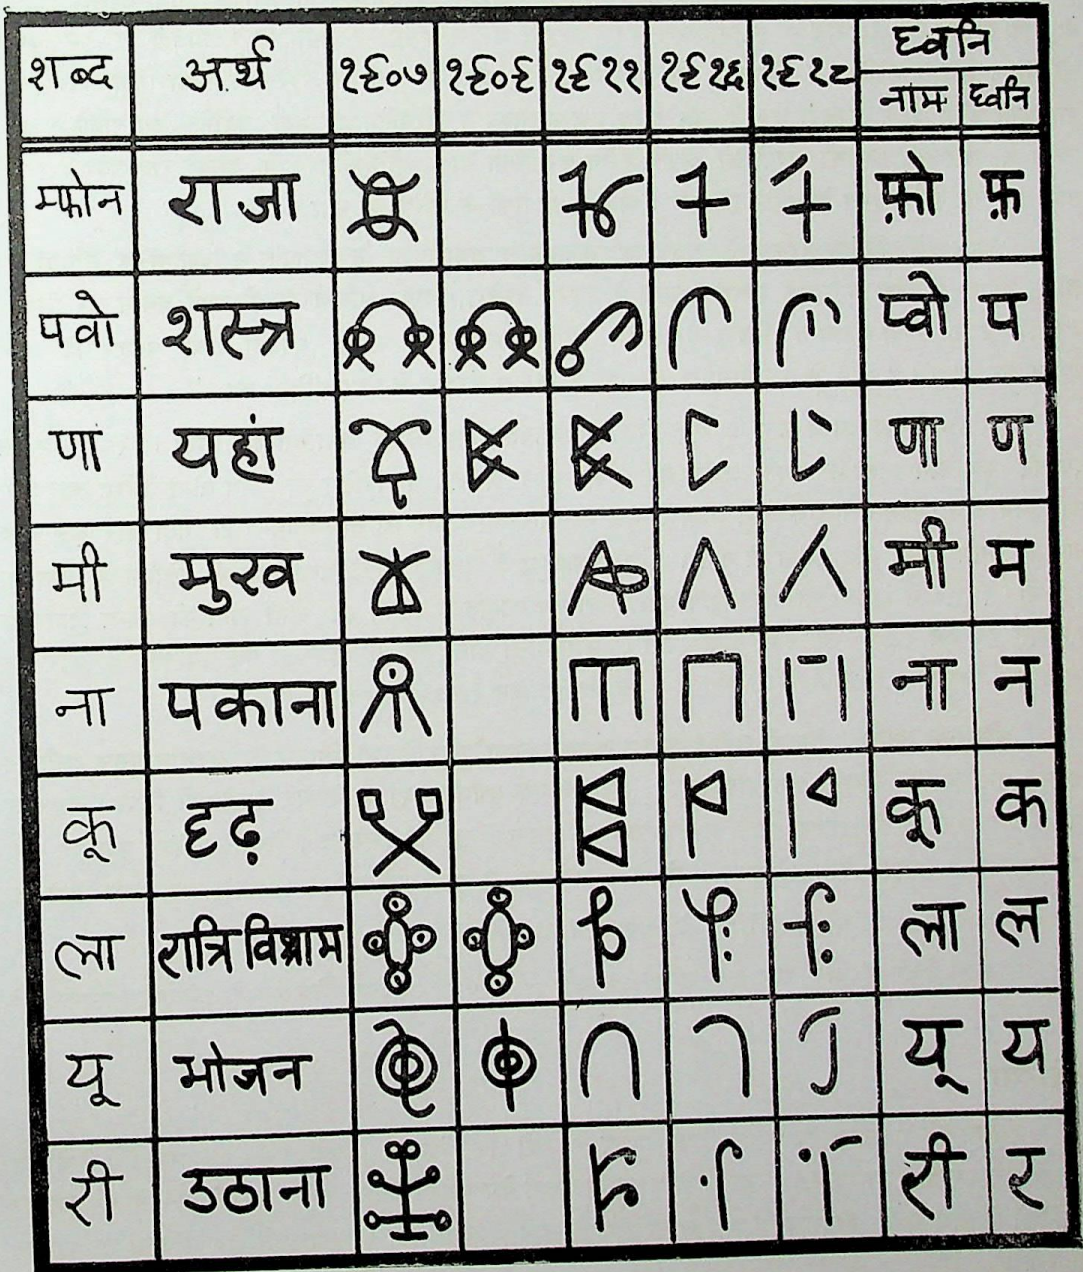 शब्द अर्थ १९०७ १९०९ १९११ १९१६ १९१८ ध्वनि
नाम ध्वनि
मफोन राजा फ़ो फ़
पवो शस्त्र प्वो प
णा यहां णा ण
मी मुख मी म
ना पकाना ना न
कू दृढ़ कू क
ला रात्रि विश्राम ला ल
यू भोजन यू य
री उठाना री र